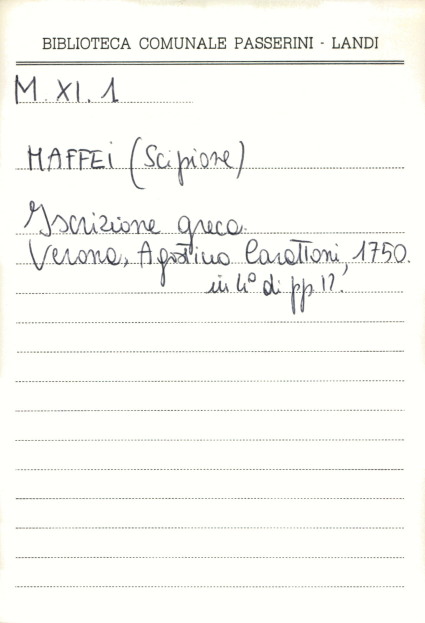 BIBLIOTECA COMUNALE PASSERINI - LANDI
M. XI. 1
MAFFEI (Scipione)
Iscrizione greca.
Verona, Agostino Carattoni, 1750.
in 4° di pp.